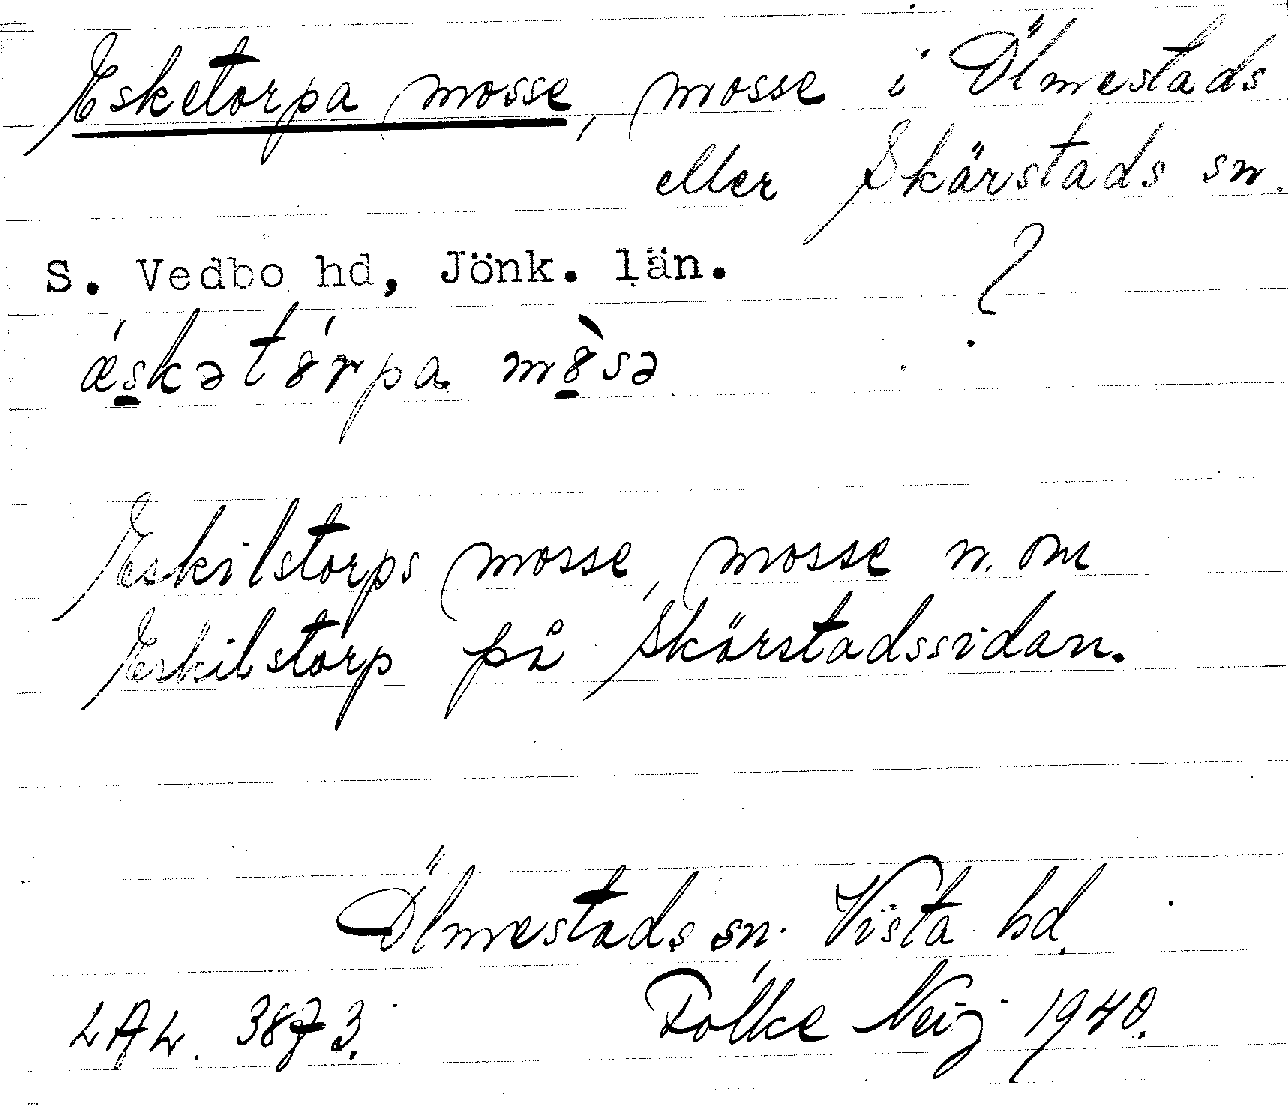 Esketorpa mosse, mosse i Ölmestads
eller Skärstads sn.
?
S. Vedbo hd, Jönk. län.
ǽskətórpa mòsə
Eskilstorps mosse, mosse n. om
Eskilstorp på Skärstadssidan.
Ölmestads sn. Vista hd.
LAL. 3873. Folke Neij 1940.